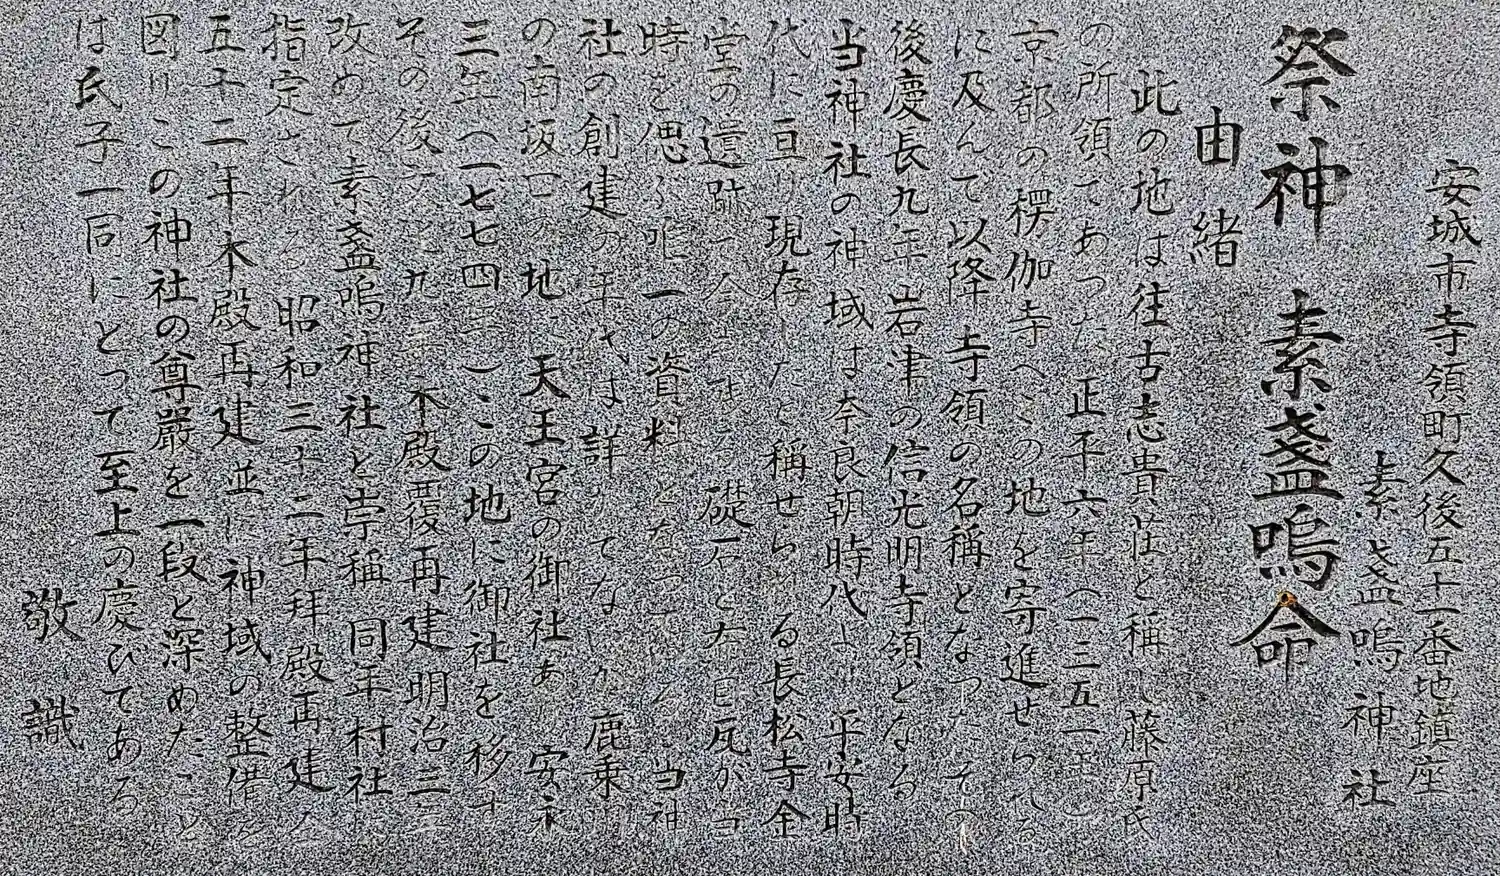 安城市寺領町久後五十一番地鎮座
素盞嗚神社
祭神 素盞嗚命
由緒
此の地は往古志貴荘と稱し藤原氏
の所領であつた 正平六年(一三五一年)
京都の楞伽寺へこの地を寄進せられる
に及んで以降 寺領の名稱となつたその
後慶長九年岩津の信光明寺領となる
当神社の神域は奈良朝時代より平安時
代に亘り現存したと稱せられる長松寺金
堂の遺跡で今も する礎石と布目瓦が当
時を偲ぶ唯一の資料となつている 当神
社の創建の年代は詳かでないが 鹿乗
の南坂口の地に天王宮の御社あり 安永
三年(一七七四年)この地に御社を移す
その後 九年本殿覆再建 明治三
改めて素盞嗚神社と崇稱 同年村社に
指定される 昭和三十二年拝殿再建 仝
五十二年本殿再建並に神域の整備を
図りこの神社の尊厳を一段と深めたこと
は氏子一同にとって至上の慶びである
敬識